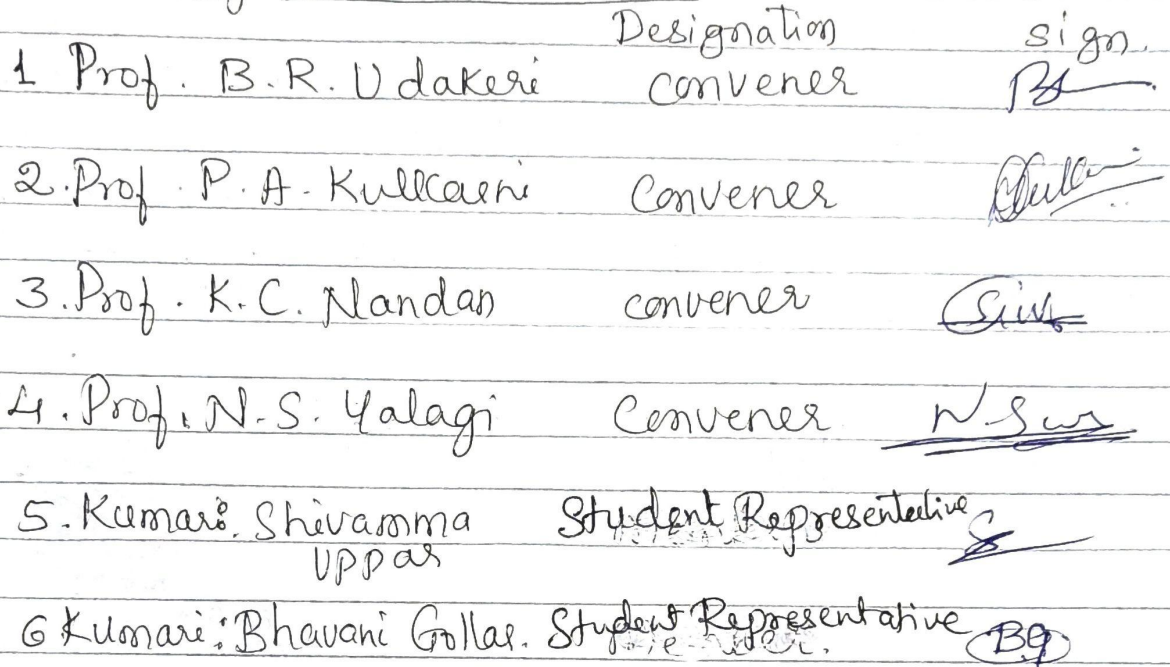 Designation sign.
1 Prof. B.R. Udakeri convener
2. Prof. P.A. Kullcarni Convener
3. Prof. K.C. Nandan convener
4. Prof. N.S. Yalagi Convener
5. Kumari. Shivamma Student Representative
Uppar
6 Kumari: Bhavani Gollar. Student Representative BG